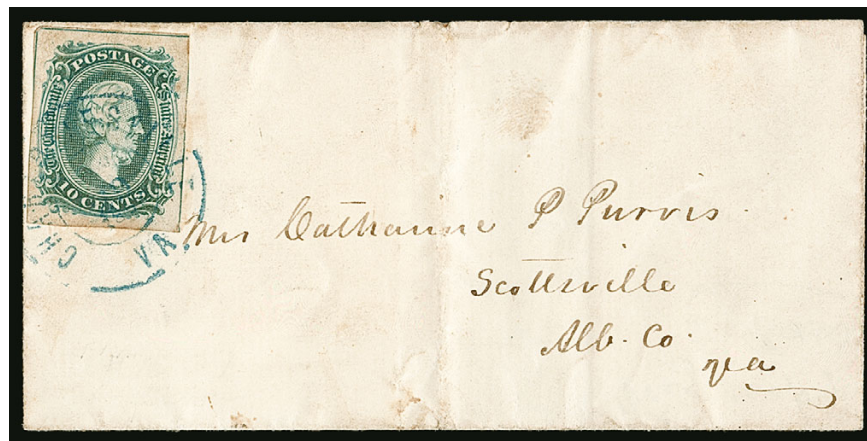 POSTAGE
The Confederate States of America
10 CENTS
VA
Mrs Catharine P Purvis
Scottsville
Alb. Co.
Va